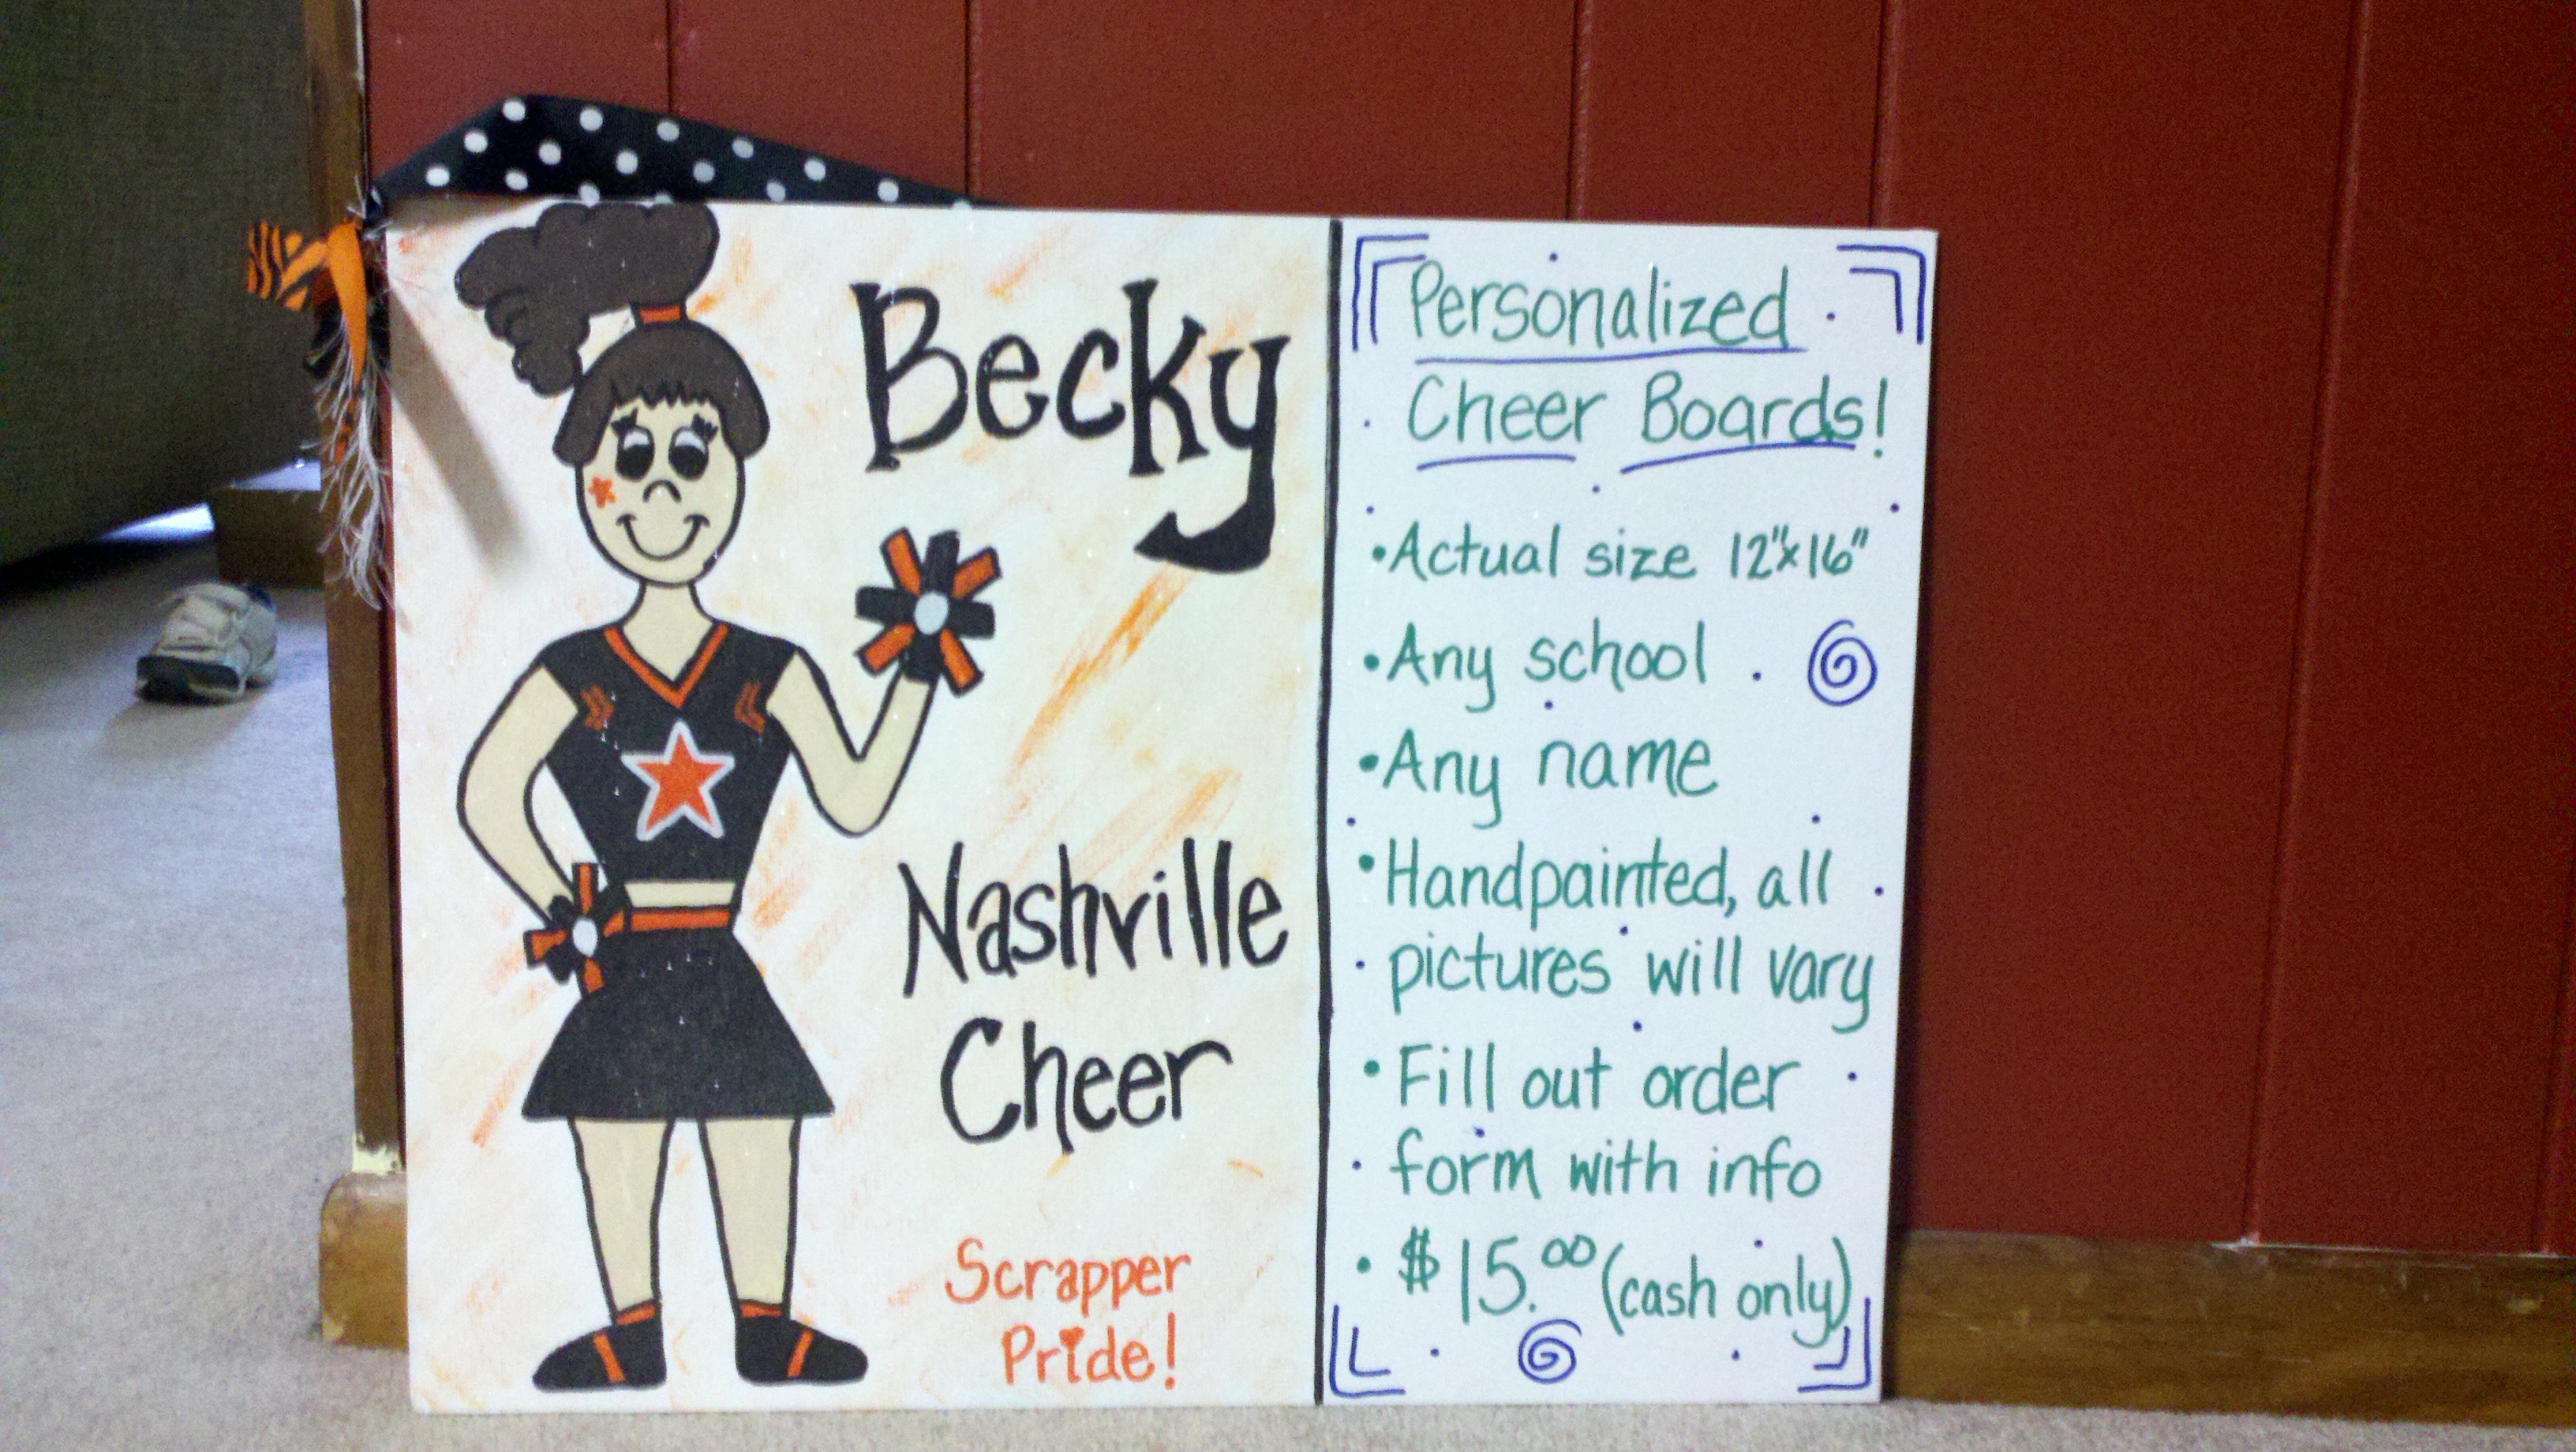 Becky
Nashville
Cheer
Scrapper
Pride!
Personalized
Cheer Boards!
•Actual size 12"x16"
•Any school
•Any name
•Handpainted, all
pictures will vary
•Fill out order
form with info
•$15.00 (cash only)